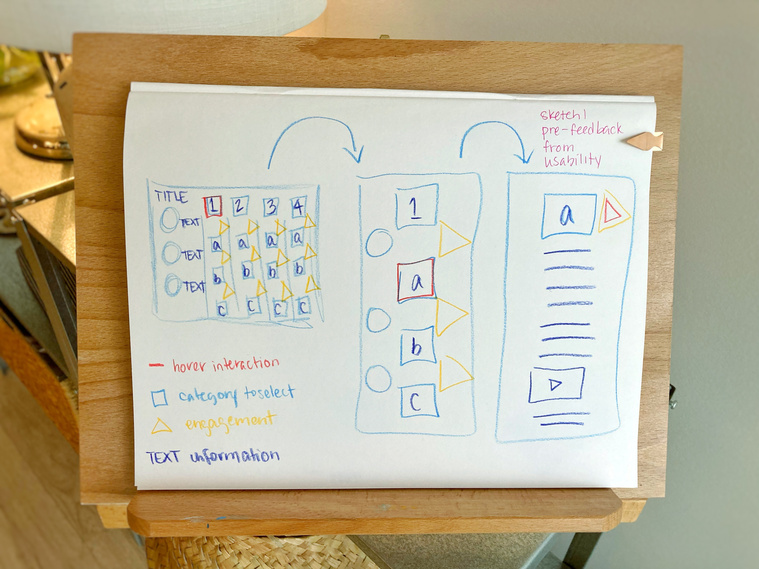 sketch 1
pre-feedback
from
usability
TITLE 1 2 3 4
TEXT
a a a a
TEXT
b b b b
TEXT
c c c c
1
a
b
c
a
hover interaction
category to select
engagement
TEXT information